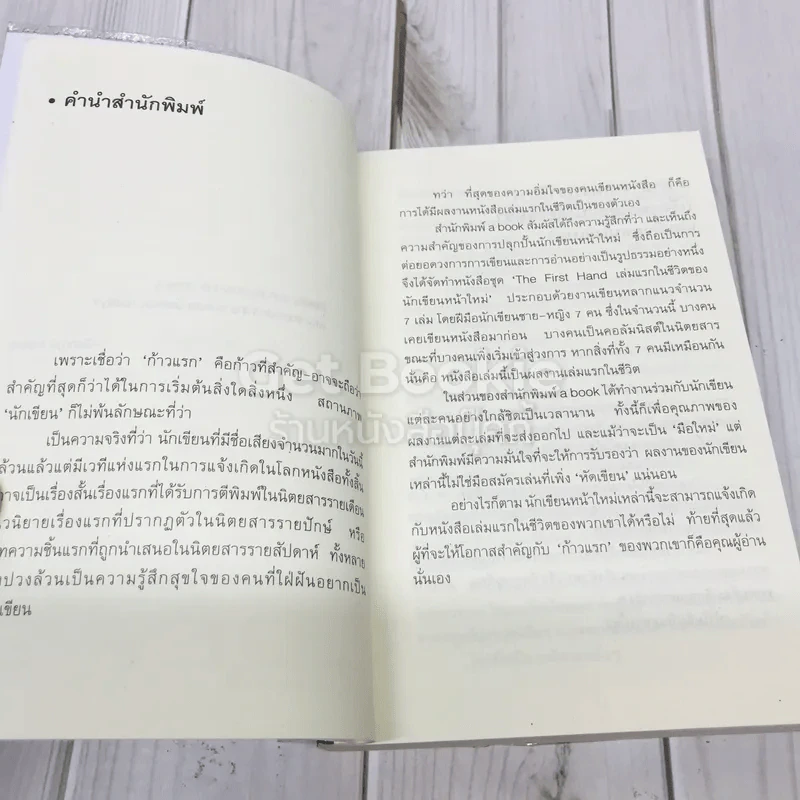 • คำนำสำนักพิมพ์
เพราะเชื่อว่า 'ก้าวแรก' คือก้าวที่สำคัญ–อาจจะถือว่า
สำคัญที่สุดก็ว่าได้ในการเริ่มต้นสิ่งใดสิ่งหนึ่ง สถานภาพ
'นักเขียน' ก็ไม่พ้นลักษณะที่ว่า
เป็นความจริงที่ว่า นักเขียนที่มีชื่อเสียงจำนวนมากในวันนี้
ล้วนแล้วแต่มีเวทีแห่งแรกในการแจ้งเกิดในโลกหนังสือทั้งสิ้น
าจเป็นเรื่องสั้นเรื่องแรกที่ได้รับการตีพิมพ์ในนิตยสารรายเดือน
วนิยายเรื่องแรกที่ปรากฏตัวในนิตยสารรายปักษ์ หรือ
ทความชิ้นแรกที่ถูกนำเสนอในนิตยสารรายสัปดาห์ ทั้งหลาย
ปวงล้วนเป็นความรู้สึกสุขใจของคนที่ใฝ่ฝันอยากเป็น
เขียน
ทว่า ที่สุดของความอิ่มใจของคนเขียนหนังสือ ก็คือ
การได้มีผลงานหนังสือเล่มแรกในชีวิตเป็นของตัวเอง
สำนักพิมพ์ a book สัมผัสได้ถึงความรู้สึกที่ว่า และเห็นถึง
ความสำคัญของการปลุกปั้นนักเขียนหน้าใหม่ ซึ่งถือเป็นการ
ต่อยอดวงการการเขียนและการอ่านอย่างเป็นรูปธรรมอย่างหนึ่ง
จึงได้จัดทำหนังสือชุด 'The First Hand เล่มแรกในชีวิตของ
นักเขียนหน้าใหม่' ประกอบด้วยงานเขียนหลากแนวจำนวน
7 เล่ม โดยฝีมือนักเขียนชาย-หญิง 7 คน ซึ่งในจำนวนนี้ บางคน
เคยเขียนหนังสือมาก่อน บางคนเป็นคอลัมนิสต์ในนิตยสาร
ขณะที่บางคนเพิ่งเริ่มเข้าสู่วงการ หากสิ่งที่ทั้ง 7 คนมีเหมือนกัน
นั้นคือ หนังสือเล่มนี้เป็นผลงานเล่มแรกในชีวิต
ในส่วนของสำนักพิมพ์ a book ได้ทำงานร่วมกับนักเขียน
แต่ละคนอย่างใกล้ชิดเป็นเวลานาน ทั้งนี้ก็เพื่อคุณภาพของ
ผลงานแต่ละเล่มที่จะส่งออกไป และแม้ว่าจะเป็น 'มือใหม่' แต่
สำนักพิมพ์มีความมั่นใจที่จะให้การรับรองว่า ผลงานของนักเขียน
เหล่านี้ไม่ใช่มือสมัครเล่นที่เพิ่ง 'หัดเขียน' แน่นอน
อย่างไรก็ตาม นักเขียนหน้าใหม่เหล่านี้จะสามารถแจ้งเกิด
กับหนังสือเล่มแรกในชีวิตของพวกเขาได้หรือไม่ ท้ายที่สุดแล้ว
ผู้ที่จะให้โอกาสสำคัญกับ 'ก้าวแรก' ของพวกเขาก็คือคุณผู้อ่าน
นั่นเอง